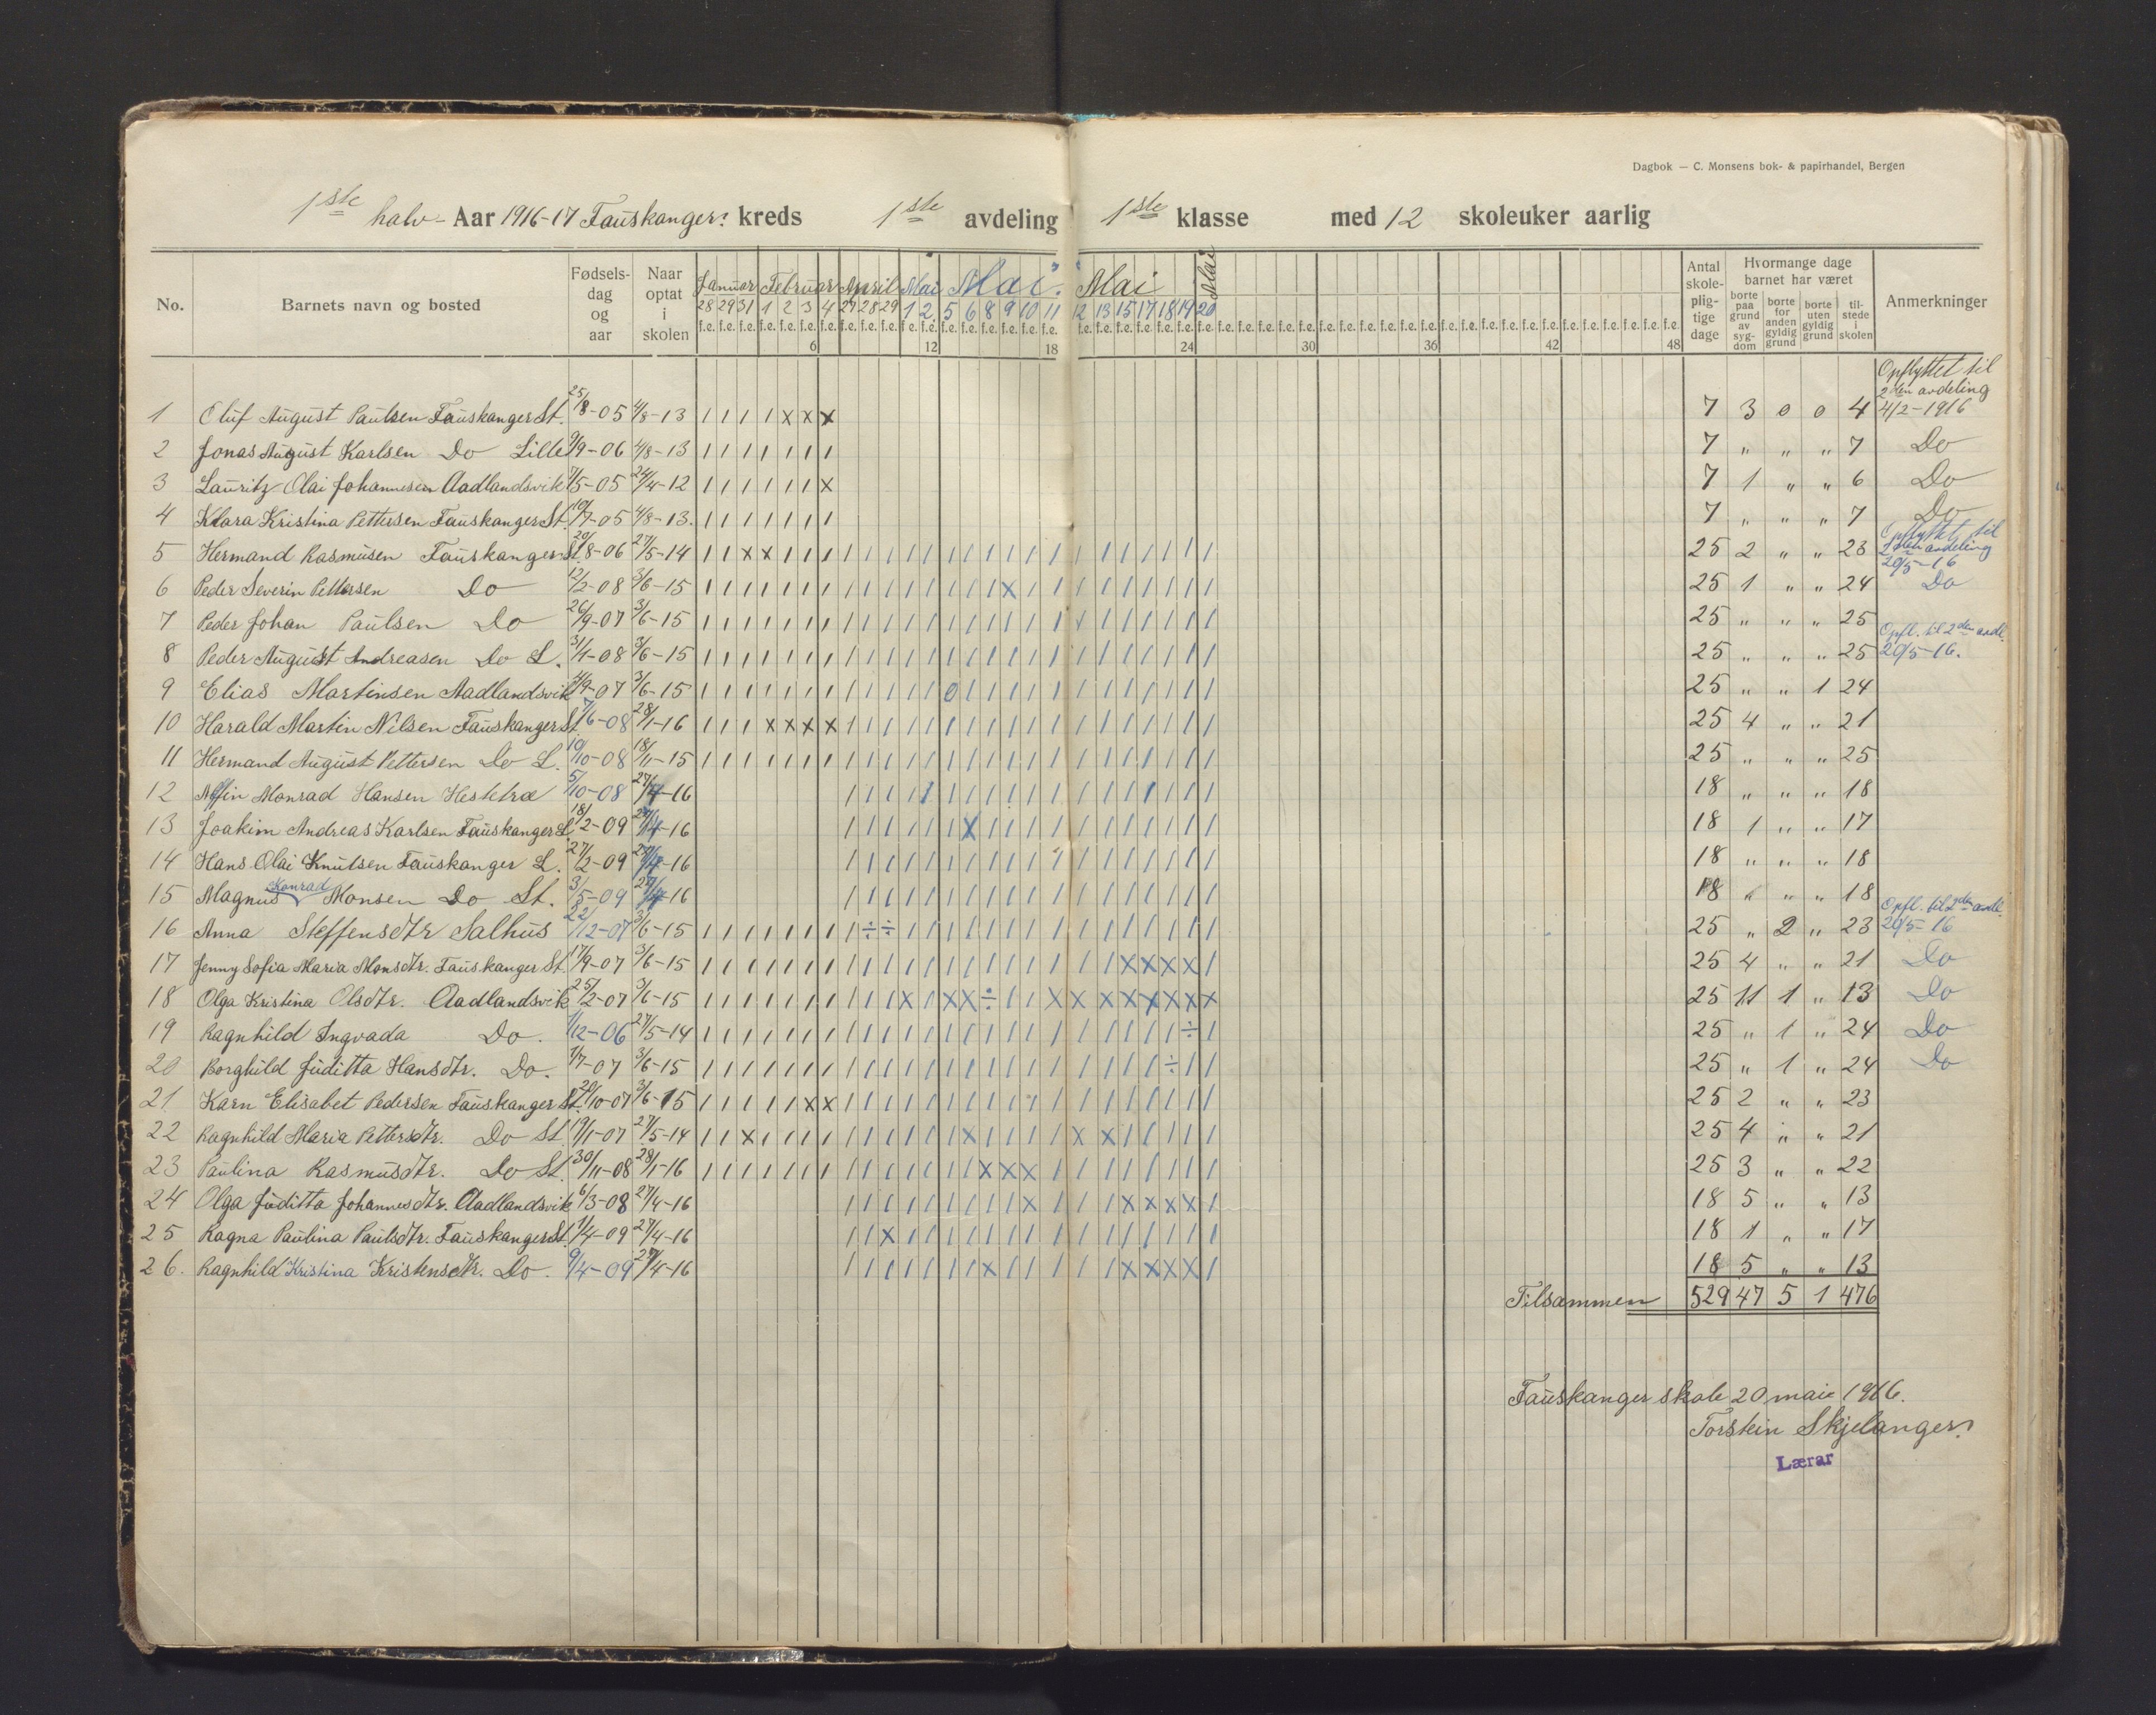 Dagbok — C. Monsens bok- & papirhandel, Bergen
1ste halv- Aar 1916-17 Fauskanger kreds 1ste avdeling 1ste klasse med 12 skoleuker aarlig
No. Barnets navn og bosted Fødsels-dag og aar Naar optat i skolen Januar Februar April Mai Mai Mai Mai Antal skole-plig-tige dage Hvormange dage barnet har været Anmerkninger
borte paa grund av syg-dom borte for anden gyldig grund borte uten gyldig grund til-stede i skolen
28 29 31 1 2 3 4 27 28 29 1 2 5 6 8 9 10 11 12 13 15 17 18 19 20
f.e. f.e. f.e. f.e. f.e. f.e. f.e. f.e. f.e. f.e. f.e. f.e. f.e. f.e. f.e. f.e. f.e. f.e. f.e. f.e. f.e. f.e. f.e. f.e. f.e. f.e. f.e. f.e. f.e. f.e. f.e. f.e. f.e. f.e. f.e. f.e. f.e. f.e. f.e. f.e. f.e. f.e. f.e. f.e. f.e. f.e. f.e. f.e.
6 12 18 24 30 36 42 48
Opflyttet til
2den avdeling
1 Oluf August Paulsen Fauskanger St. 25/8-05 4/8-13 / / / / x x x 7 3 0 0 4 4/2-1916
2 Jonas August Karlsen Do Lille 9/9-06 4/8-13 / / / / / / / 7 " " " 7 Do
3 Lauritz Olai Johannesen Aadlandsvik 7/5-05 24/4-12 / / / / / / x 7 1 " " 6 Do
4 Klara Kristina Pettersen Fauskanger St. 10/7-05 4/8-13. / / / / / / / 7 " " " 7 Do
Opflyttet til
5 Hermand Rasmusen Fauskanger St. 20/8-06 27/5-14 / / x x / / / / / / / / / / / / / / / / / / / / / 25 2 " " 23 2den avdeling
20/5-16
6 Peder Severin Pettersen Do 12/2-08 3/6-15 / / / / / / / / / / / / / / / x / / / / / / / / / 25 1 " " 24 Do
7 Peder Johan Paulsen Do 26/9-07 3/6-15 / / / / / / / / / / / / / / / / / / / / / / / / / 25 " " " 25
Opfl. til 2den avdl.
8 Peder August Andreasen Do L. 3/4-08 3/6-15 / / / / / / / / / / / / / / / / / / / / / / / / / 25 " " " 25 20/5-16.
9 Elias Martinsen Aadlandsvik 4/9-07 3/6-15 / / / / / / / / / / / / 0 / / / / / / / / / / / / 25 " " 1 24
10 Harald Martin Nilsen Fauskanger St. 7/6-08 28/1-16 / / / x x x x / / / / / / / / / / / / / / / / / / 25 4 " " 21
11 Hermand August Pettersen Do L. 10/10-08 18/11-15 / / / / / / / / / / / / / / / / / / / / / / / / / 25 " " " 25
12 Monrad Hansen Hestetræ 5/10-08 27/4-16 / / / / / / / / / / / / / / / / / / 18 " " " 18
13 Joakim Andreas Karlsen Fauskanger L. 18/2-09 27/4-16 / / / / / / x / / / / / / / / / / / 18 1 " " 17
14 Hans Olai Knutsen Fauskanger L. 27/2-09 27/4-16 / / / / / / / / / / / / / / / / / / 18 " " " 18
15 Magnus Konrad Monsen Do St. 3/5-09 27/4-16 / / / / / / / / / / / / / / / / / / 18 " " " 18
Opfl. til 2den avdl.
16 Anna Steffensdtr Salhus 22/12-07 3/6-15 / / / / / / / / ÷ ÷ / / / / / / / / / / / / / / / 25 " 2 " 23 20/5-16
17 Jenny Sofia Maria Monsdtr. Fauskanger St. 17/9-07 3/6-15 / / / / / / / / / / / / / / / / / / / / x x x x / 25 4 " " 21 Do
18 Olga Kristina Olsdtr. Aadlandsvik 25/2-07 3/6-15 / / / / / / / / / / x / x x ÷ / / x x x x x x x x 25 11 1 " 13 Do
19 Ragnhild Ingvada Do. 1/12-06 27/5-14 / / / / / / / / / / / / / / / / / / / / / / / ÷ / 25 " 1 " 24 Do
20 Borghild Juditta Hansdtr. Do. 7/7-07 3/6-15 / / / / / / / / / / / / / / / / / / / / / / ÷ / / 25 " 1 " 24 Do
21 Karn Elisabet Pedersen Fauskanger St. 20/10-07 3/6-15 / / / / / x x / / / / / / / / / / / / / / / / / / 25 2 " " 23
22 Ragnhild Maria Pettersdtr. Do St. 19/1-07 27/5-14 / / x / / / / / / / / / / x / / / / x x / / / / / 25 4 " " 21
23 Paulina Rasmusdtr. Do St. 30/11-08 28/1-16 / / / / / / / / / / / / / / x x x / / / / / / / / 25 3 " " 22
24 Olga Juditta Johannesdtr. Aadlandsvik 6/3-08 27/4-16 / / / / / / / / / x / / / x x x x / 18 5 " " 13
25 Ragna Paulina Paulsdtr. Fauskanger St. 1/4-09 27/4-16 / / x / / / / / / / / / / / / / / / 18 1 " " 17
26. Ragnhild Kristina Kristensdtr. Do. 9/4-09 27/4-16 / / / / / / / x / / / / / x x x x / 18 5 " " 13
Tilsammen 529 47 5 1 476
Fauskanger skole 20 mai 1916.
Torstein Skjelanger.
Lærar